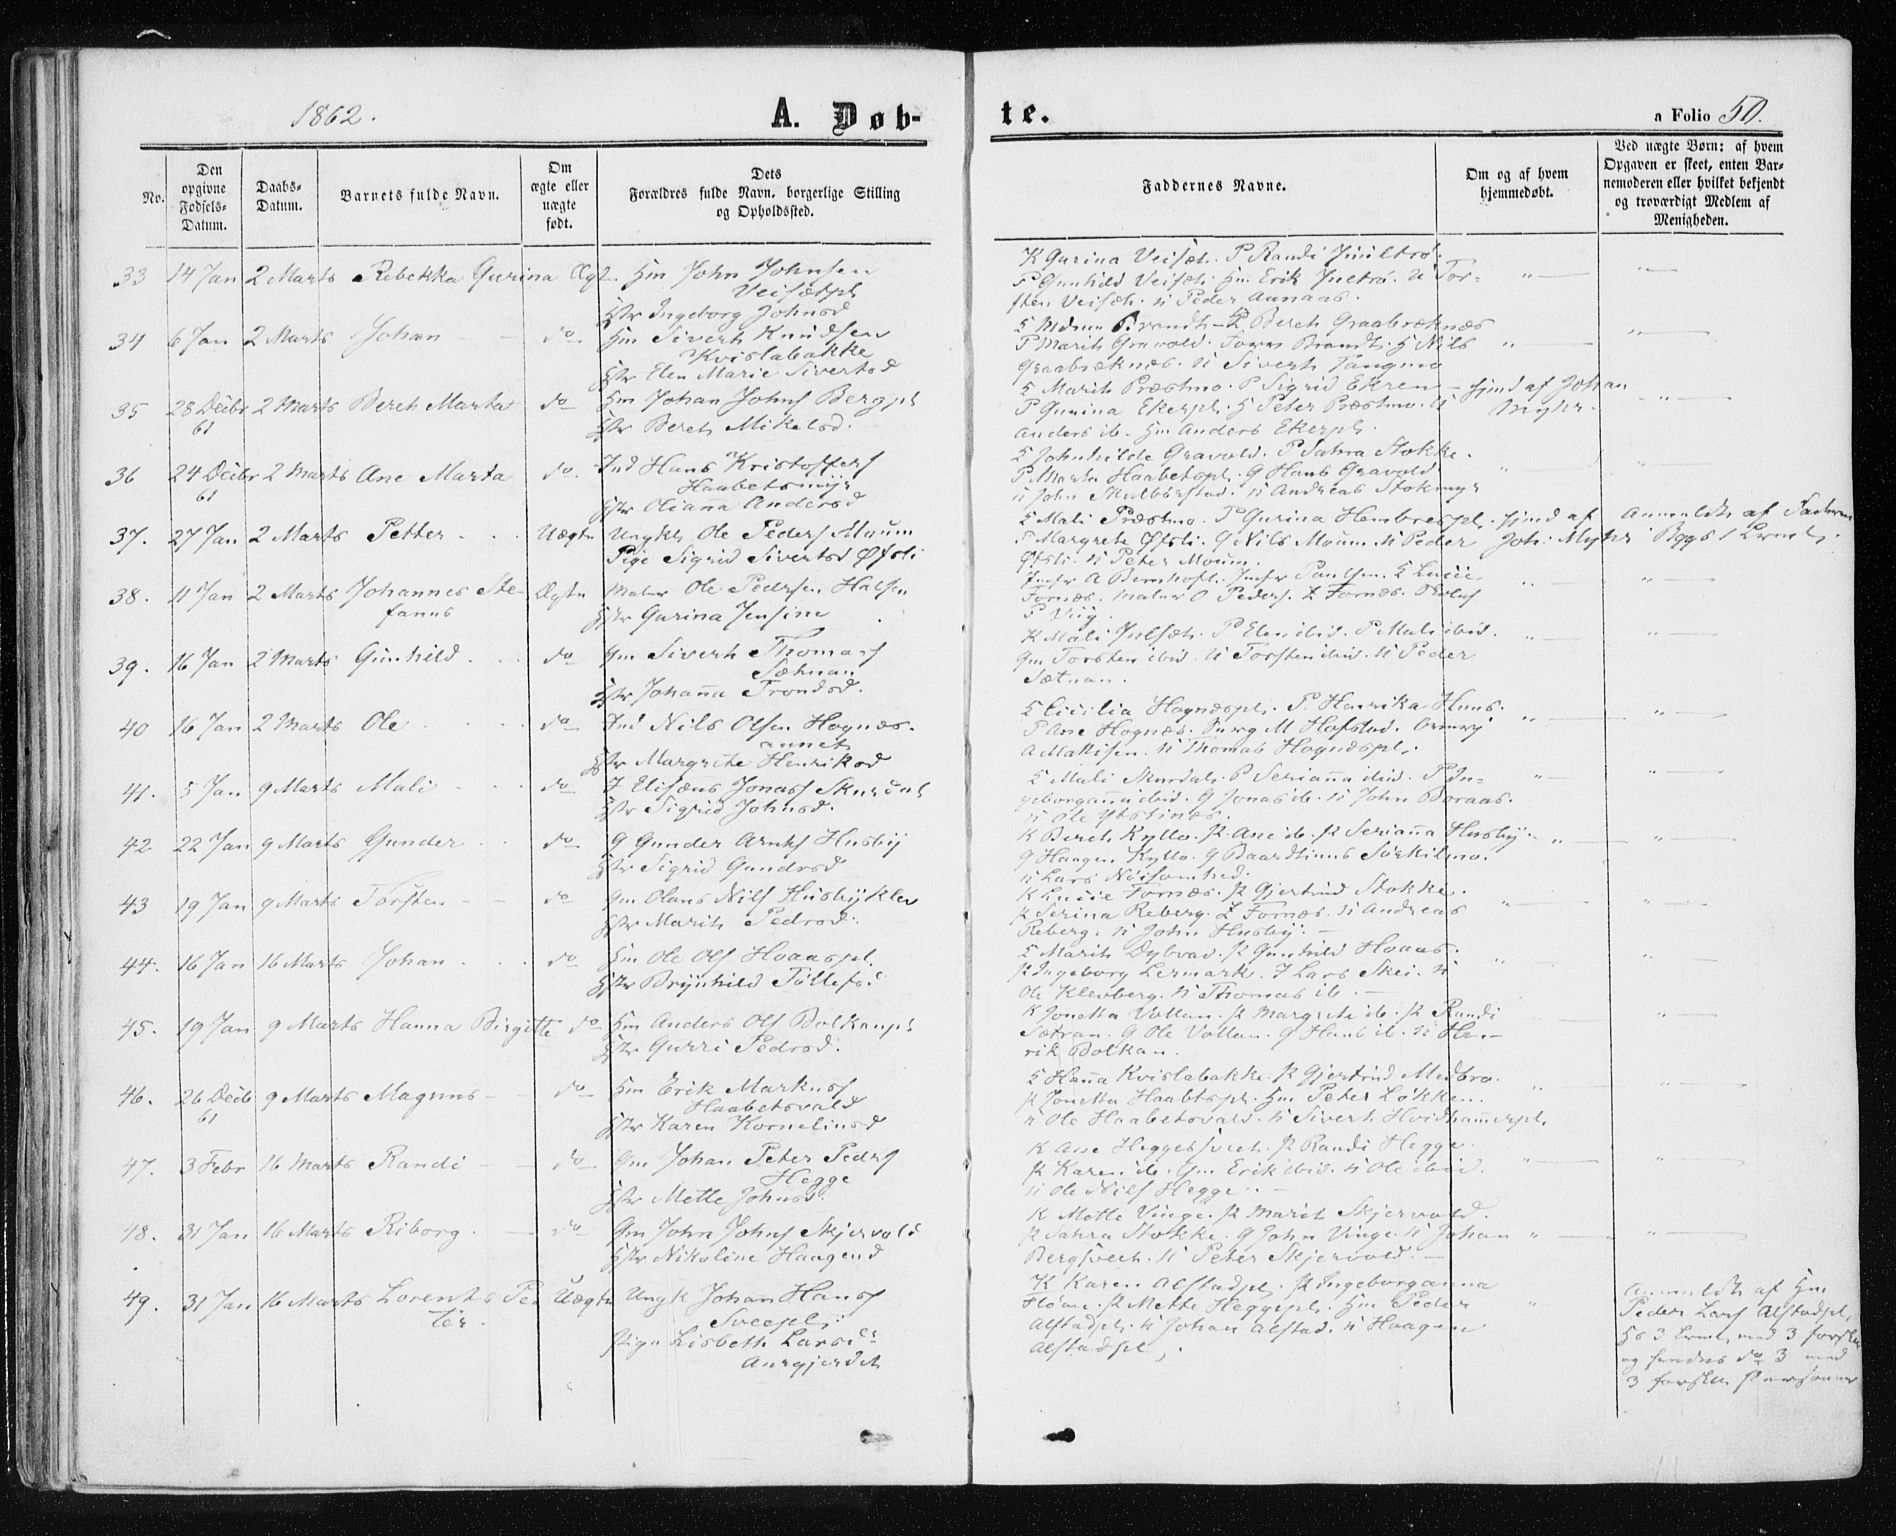 1862.
A. Døb-
te.
a Folio 50.
No.
Den
opgivne
Fødsels-
Datum.
Daabs-
Datum.
Barnets fulde Navn.
Om
ægte eller
uægte
født.
Dets
Forældres fulde Navn, borgerlige Stilling
og Opholdssted.
Faddernes Navne.
Om og af hvem
hjemmedøbt.
Ved uægte Børn: af hvem
Opgaven er skeet, enten Bar-
nemoderen eller hvilket bekjendt
og troværdigt Medlem af
Menigheden.
33 14 Jan 2 Marts Rebekka Gurina Ægt. Hm John Johnsen
Veisætpl
Hstr Ingeborg Johnsd
K Gurina Veisæt. P Randi
P Gunhild Veisæt. Hm Erik U Tor-
sten Veisæt. U Peder Aunaas.
34 6 Jan 2 Marts Johan do Hm Sivert Knudsen
Kvislabakke
Hstr Elen Marie Sivertsd
Brandt P Beret Graabræknæs
P Marit Gravold. Brandt. G Nils
Graabræknæs. U Sivert Tangmo
35 28 Decbr 2 Marts Beret Marta do Hm Johan Johns Bergpl
61
Hstr Beret Mikelsd.
Marit Præstmo. P Sigrid Ekren - hjmd af Johan
P Gurina Ekerpl. G Peter Præstmo. U Myhr.
Anders ib. Hm Anders Ekerpl.
36 24 Decbr 2 Marts Ane Marta do. Ind Hans Kristoffers
61
Haabetsmyr
Hstr Olianna Andersd
Johnhilde Gravold. P Sahra Stokke.
P Marta Haabetspl. G Hans Gravold
U John U Andreas Stokmyr
37. 27 Jan 2 Marts Petter Uægte Ungkl Ole Peders Moum
Pige Sigrid Sivertsd Øfsti
Mali Præstmo. P Gurina Hembrespl. hjmd af Anmeldt af Faderen
P Margrete Øfsti. G Nils Moum. U Peder Joh: Myhr
Øfsti. U Peter Moum.
38. 11 Jan 2 Marts Johannes Ste-
fanus
Ægte Maler Ole Pedersen Halsen
Hstr Gurina Jensine
Jmfr A Bernhoft. Jmfr Paulsen. Lucie
Fornæs. Maler O Peders. L Fornæs.
P Viig.
39. 16 Jan 2 Marts Gunhild do Gm Sivert Thomass
Sætnan
Hstr Johanna Trondsd.
K Mali Julsæt. P Elen ibid. P Mali ibid.
Gm Torsten ibid. U Torsten ibid. U Peder
Sætnan.
40 16 Jan 2 Marts Ole do Ind Nils Olsen Hognæs-
annet
Hstr Margrete Henriksd
Cicilia Hognæspl. P. Henrika Huus.
P Ane Hognæs. M Hofstad.
A Matisen. U Thomas Hognæspl.
41. 5 Jan 9 Marts Mali do Elisæus Jonass Skurdal
Hstr Sigrid Johnsd.
Mali Skurdal. P Serianna ibid. P In-
geborganna ibid. G Jonas ib. U John Boraas.
U Ole
42 22 Jan 9 Marts Gunder do G Gunder Arnts Husby
Hstr Sigrid Gundersd
K Beret Kyllo. P. Ane ib. P Serianna Husby.
G Haagen Kyllo. G Baardtinus Sørkilmo.
U Lars Nøisomhed.
43 19 Jan 9 Marts Torsten do Gm Olaus Nils Husbyklev
Hstr Marit Pedersd.
K Lucie Fornæs. P Gjertrud Stokke.
P Serina Reberg. L Fornæs. U Andreas
Reberg. U John Husby.
44. 16 Jan 16 Marts Johan do Hm Ole Ols Hoaaspl.
Hstr Brynhild Tollefsd
Marit Dybvad. P Gunhild Hoaas.
P Ingeborg Lermark. Lars Skei. U
Ole Klevberg. U Thomas ib.
45. 19 Jan 9 Marts Hanna Birgitte do Hm Anders Ols Bolkanpl
Hstr Gurri Pedersd.
K Jonetta Vollan. P Margrete ib. P Randi
Sætran. G Ole Vollan. G Hans ib. U Hen-
rik Bolkan.
46. 26 Decb 9 Marts Magnus do Hm Erik Markuss
61
Haabetsvald
Hstr Karen Korneliusd
Hanna Kvislabakke. P Gjertrud Medbro.
P Jonetta Haabtspl. Hm Peter Løkken.
U Ole Haabetsvald. U Sivert Hvidhammerpl.
47. 3 Febr 16 Marts Randi do Gm Johan Peter Peders
Hegge
Hstr Mette Johnsd.
K Ane Heggessveet. P Randi Hegge.
P Karen ib. Gm Erik ibid. U Ole ibid.
U Ole Nils Hegge.
48. 31 Jan 16 Marts Riborg. do Gm John Johns Skjervold
Hstr Nikoline Haagensd
K Mette Vinge. P Marit Skjervold.
P Sahra Stokke. G John Vinge. U Johan
Bergsveet. U Peter Skjervold.
49. 31 Jan 16 Marts Lorents Pe-
ter.
Uægte Ungk Johan Hans
Sveepl:
Pige Lisbeth Larsdr
Aurgjerdet
K Karen Alstadpl. P Ingeborganna
P Mette Heggepl. Hm Peder
Alstadpl. U Johan Alstad. U Haagen
Alstadpl.
Anmeldt af Hm
Peder Lars Alstadpl.